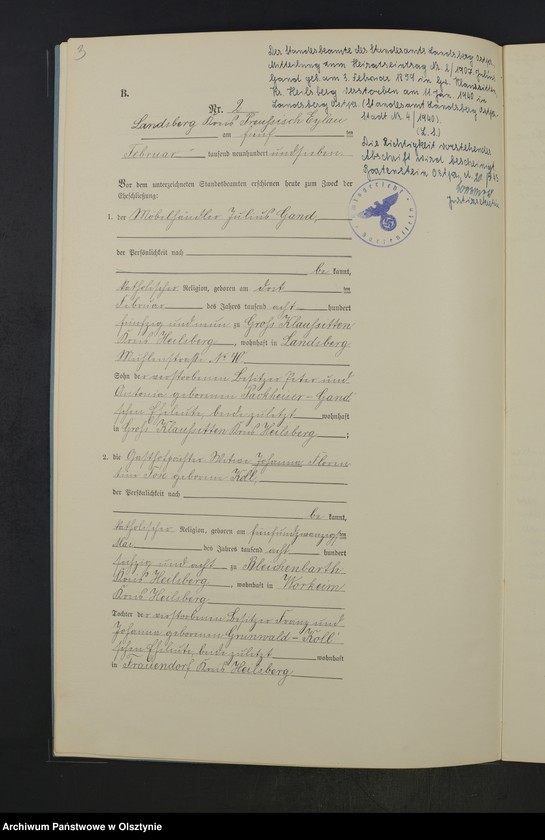 3
Der Standesbeamte des Standesamts Landsberg Ostpr.
Mitteilung zum Heiratseintrag Nr. 2/1907. Julius
Gand geb. am 3. Februar 1859 in Gr. Klaussitten,
Kr. Heilsberg verstorben am 11. Jan. 1940 in
Landsberg Ostpr. (Standesamt Landsberg Ostpr.
Stadt Nr. 4/1940).
(L. S.)
Die Richtigkeit vorstehender
Abschrift wird bescheinigt
Bartenstein Ostpr., d.
B.
Nr. 2
Landsberg Kreis Preussisch Eylau
am fünf ten
Februar tausend neunhundert und sieben
Vor dem unterzeichneten Standesbeamten erschienen heute zum Zweck der
Eheschließung:
1. der Möbelhändler Julius Gand,
der Persönlichkeit nach
be kannt,
katholischer Religion, geboren am ten
Februar des Jahres tausend acht hundert
fünfzig und neun zu Gross Klaussitten
Kreis Heilsberg, wohnhaft in Landsberg
Mühlenstraße No 40
Sohn der verstorbenen Besitzer Peter und
Antonia geborenen Parkheuser-Gand'
schen Eheleute, beide zuletzt wohnhaft
in Gross Klaussitten Kreis Heilsberg;
2. die Gasthofpächter Witwe Johanna Floren
tine Fox geborene Koll,
der Persönlichkeit nach
be kannt,
katholischer Religion, geboren am fünfundzwanzigsten
Mai des Jahres tausend acht hundert
sechzig und acht zu Bleichenbarth
Kreis Heilsberg, wohnhaft in Workeim
Kreis Heilsberg
Tochter der verstorbenen Besitzer Franz und
Johanna geborenen Grunwald-Koll'
schen Eheleute, beide zuletzt wohnhaft
in Frauendorf Kreis Heilsberg
Archiwum Państwowe w Olsztynie